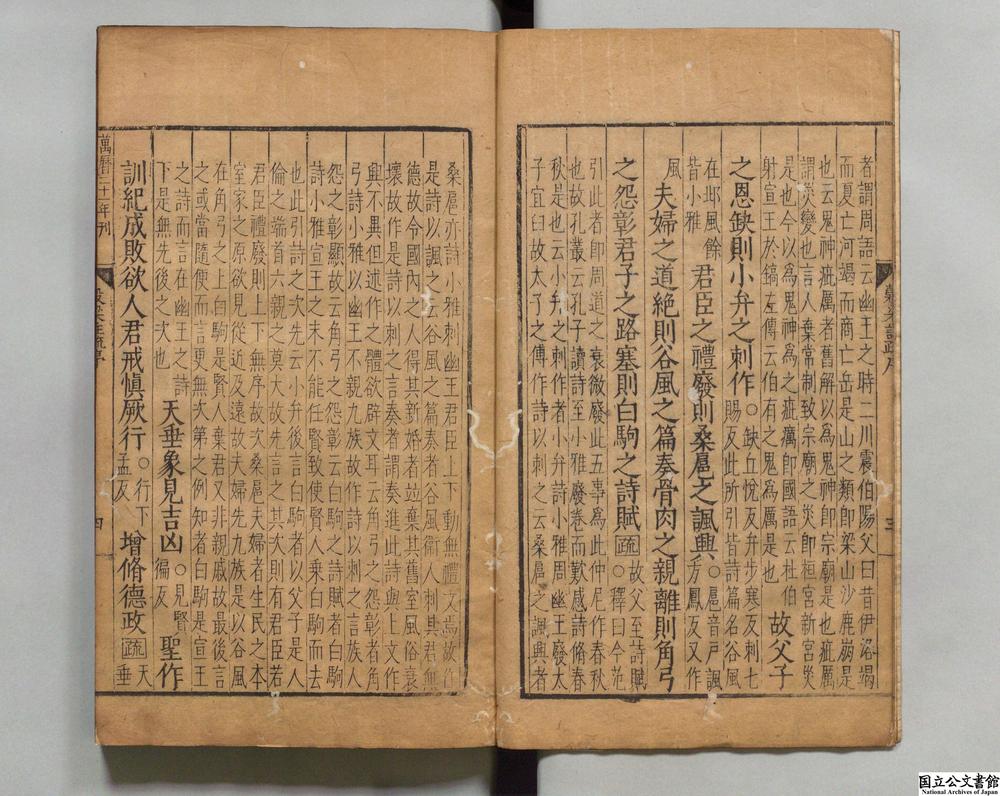 者謂周語云幽王之時二川震伯陽父曰昔伊洛竭
而夏亡河竭而商亡岳是山之類即梁山沙鹿崩是
也云鬼神疵厲者舊解以為鬼神即宗廟是也疵厲
謂災變也言人棄常制致宗廟之災即桓宮新宮災
是也今以為鬼神為之疵癘即國語云杜伯
射宣王於鎬左傳云伯有之鬼為厲是也
故父子
之恩缺則小弁之刺作
○缺丘悅反弁步寒反刺七
賜反此所引皆詩篇名谷風
在邶風餘
皆小雅
君臣之禮廢則桑扈之諷興
○扈音戶諷
方鳳反又作
風
夫婦之道絶則谷風之篇奏骨肉之親離則角弓
之怨彰君子之路塞則白駒之詩賦
疏
故父至詩賦
○釋曰今范
引此者即周道之衰微廢此五事為此仲尼作春秋
也故孔叢云孔子讀詩至小雅廢卷而歎感詩脩春
秋是也云小弁之刺作者小弁詩小雅周幽王廢太
子宜臼故太子之傅作詩以刺之云桑扈之諷興者
桑扈亦詩小雅刺幽王君臣上下動無禮文焉故作
是詩以諷之云谷風之篇奏者谷風衞人刺其君無
德故令國內之人得其新婚者並棄其舊室風俗衰
壞故作是詩以刺之言奏者謂奏進此詩與上文作
興不異但述作之體欲辟文耳云角弓之怨彰者角
弓詩小雅以幽王不親九族故作詩以刺之言族人
怨之彰顯故云角弓之怨彰云白駒之詩賦者白駒
詩小雅宣王之末不能任賢致使賢人乘白駒而去
也此引詩之次先云小弁後言白駒者以父子是人
倫之端首六親之莫大故先言之其次則有君臣若
君臣禮廢則上下無序故次桑扈夫婦者生民之本
室家之原欲見從近及遠故夫婦先九族是以谷風
在角弓之上白駒是賢人棄君又非親戚故最後言
之或當隨便而言更無次第之例知者白駒是宣王
之詩而言在幽王之上
下是無先後之次也
天垂象見吉凶
○見賢
徧反
聖作
訓紀成敗欲人君戒愼厥行
○行下
孟反
增脩德政
疏
天
垂
三
四
萬曆二十一年刊
國立公文書館
National Archives of Japan